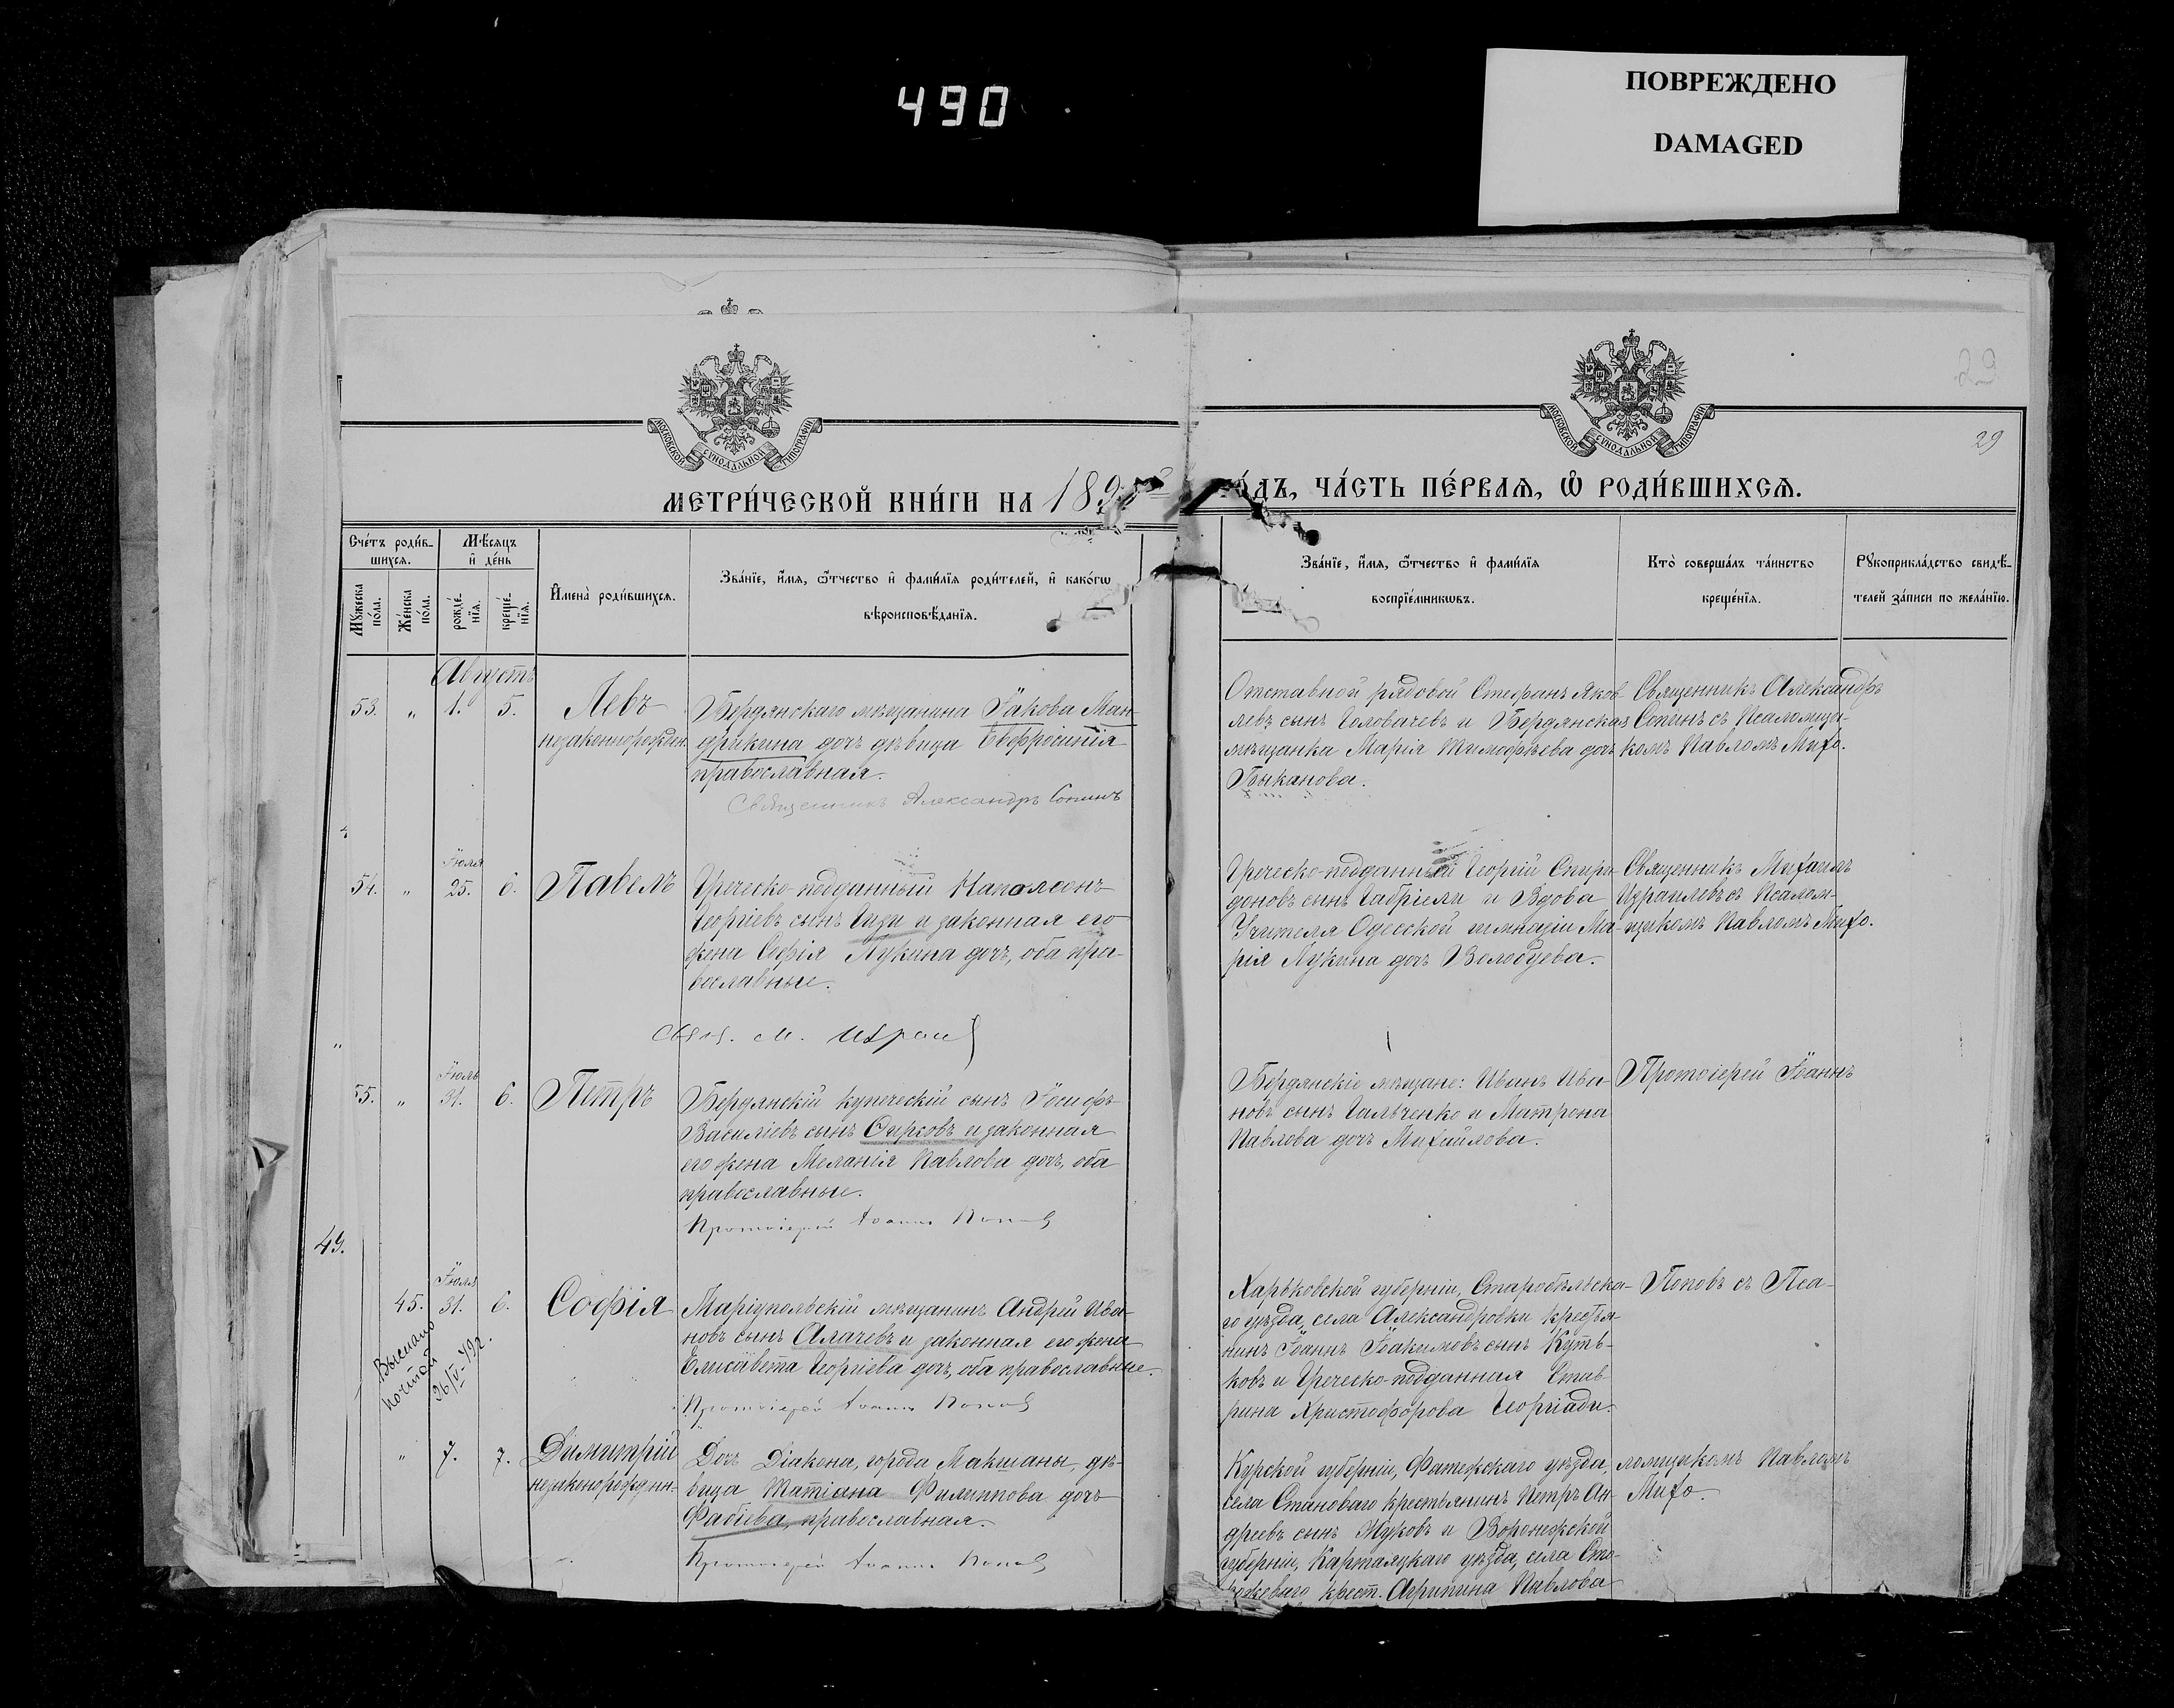 490
ПОВРЕЖДЕНО
DAMAGED
29
29
МОСКОВСКОЙ СѴНОДАЛЬНОЙ ТИПОГРАФІИ
МОСКОВСКОЙ СѴНОДАЛЬНОЙ ТИПОГРАФІИ
МЕТРИ́ЧЕСКОЙ КНИ́ГИ НА 189
ДЪ, ЧА́СТЬ ПЕ́РВАЯ, Ѿ РОДИ́ВШИХСЯ.
Сче́тъ роди́в-
шихся.
Мѣ́сяцъ
и҆ де́нь
Мꙋ́жеска
по́ла.
Же́нска
по́ла.
рожде́-
нїя.
креще́-
нїя.
И҆мена̀ роди́вшихся.
Зва́нїе, и҆́мя, ѻ҆́тчество и҆ фами́лїя роди́телей, и҆ како́гѡ
вѣроисповѣ́данїя.
Зва́нїе, и҆́мя, ѻ҆́тчество и҆ фами́лїя
воспрїе́мникѡвъ.
Кто̀ соверша́лъ та́инство
креще́нїя.
Рꙋкоприкла́дство свидѣ́-
телей за́писи по жела́нїю.
Августъ
53. „ 1. 5.
Левъ
незаконнорожден.
Бердянскаго мѣщанина Іакова Ман-
дрикина дочь дѣвица Евфросинія
православная.
Священникъ Александръ Сопинъ
Отставной рядовой Стефанъ Яков-
левъ сынъ Головачевъ и Бердянская
мѣщанка Марія Тимофѣева дочь
Цыканова.
Священникъ Александръ
Сопинъ съ Псаломщи-
комъ Павломъ Михо.
Іюля
54. „ 25. 6.
Павелъ
Греческо-подданный Наполеонъ
Георгіевъ сынъ Гизи и законная его
жена Софія Лукина дочь, оба пра-
вославные.
Свящ. М. Израил
Греческо-подданный Георгій Спири-
доновъ сынъ Габріели и Вдова
Учителя Одесской гимназіи Ма-
рія Лукина дочь Волобуева.
Священникъ Михаилъ
Израилевъ съ Псалом-
щикомъ Павломъ Михо.
Іюль
55. „ 31. 6.
Петръ
Бердянскій купеческій сынъ Іосифъ
Василіевъ сынъ Сирковъ и законная
его жена Меланія Павлова дочь, оба
православные.
Протоіерей Іоаннъ Попов
Бердянскіе мѣщане: Иванъ Ива-
новъ сынъ Гальченко и Матрона
Павлова дочь Михайлова.
Протоіерей Іоаннъ
49.
Іюля
45. 31. 6.
Софія
Маріупольскій мѣщанинъ Андрей Ива-
новъ сынъ Алачевъ и законная его жена
Елисавета Георгіева дочь, оба православные.
Протоіерей Іоаннъ Попов
Выслано
почтой
26/V-49г.
Харьковской губерніи, Старобѣльска-
го уѣзда, села Александровки крестья-
нинъ Іоаннъ Іоакимовъ сынъ Куть-
ковъ и Греческо-подданная Став-
рина Христофорова Георгіади.
Поповъ съ Пса-
„ 7. 7.
Димитрій
незаконорожден.
Дочь Діакона, города Макшаны, дѣ-
вица Татіана Филиппова дочь
Фабіева, православная.
Протоіерей Іоаннъ Попов
Курской губерніи, Фатежскаго уѣзда,
села Становаго крестьянинъ Петръ Ан-
дреевъ сынъ Жуковъ и Воронежской
губерніи, уѣзда, села Сто-
крест. Агрипина Павлова
ломщикомъ Павломъ
Михо.